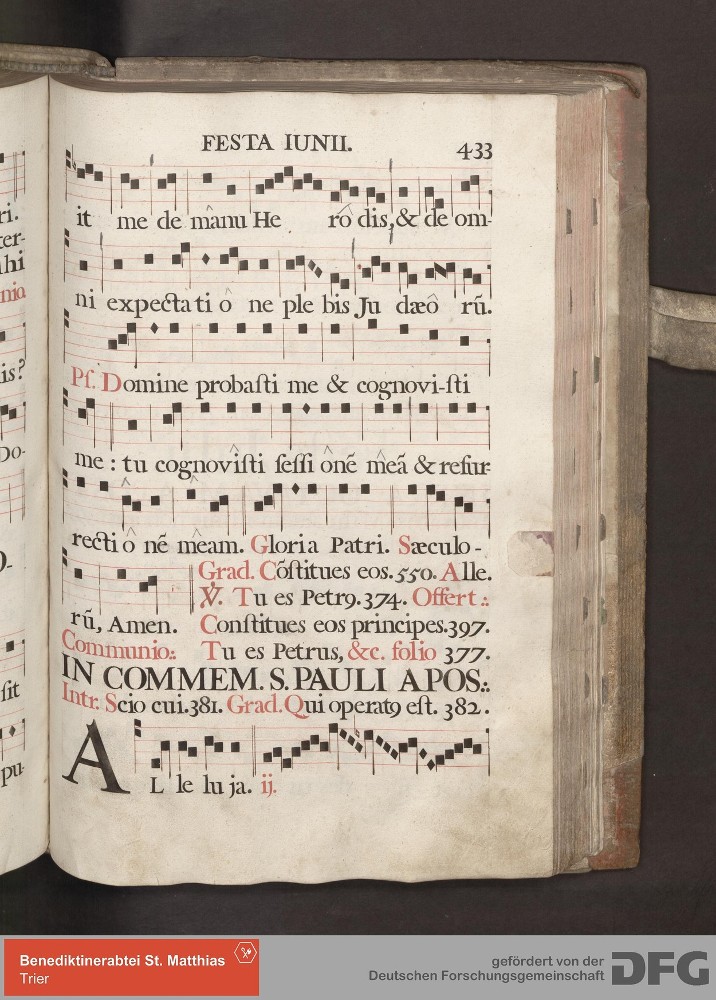 ri.
ter-
ihi
nio
is?
Do-
O-
sit
pu-
FESTA IUNII. 433
it me de mânu He rô dis, & de om-
ni expectati ô ne ple bis Ju dæô rũ.
Ps. Domine probasti me & cognovi-sti
me : tu cognovîsti sessi ônẽ mêã & resur-
recti ô nẽ mêam. Gloria Patri. Sæculo -
Grad. Cõstitues eos. 550. Alle.
℣. Tu es Petr9. 374. Offert :.
rũ, Amen. Constitues eos principes. 397.
Communio:. Tu es Petrus, &c. folio 377.
IN COMMEM. S. PAULI APOS:.
Intr. Scio cui. 381. Grad. Qui operat9 est. 382.
AL le lu ja. ij.
Benediktinerabtei St. Matthias
Trier
gefördert von der
Deutschen Forschungsgemeinschaft
DFG